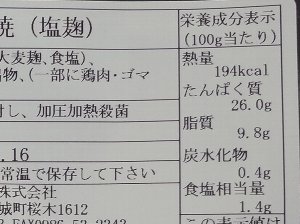 焼（塩麹）
大麦麹、食塩）、
物、（一部に鶏肉・ゴマ
し、加圧加熱殺菌
.16
常温で保存して下さい
株式会社
城町桜木1612
栄養成分表示
(100g当たり)
熱量
194kcal
たんぱく質
26.0g
脂質
9.8g
炭水化物
0.4g
食塩相当量
1.4g
この表示値は